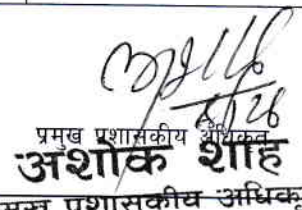 प्रमुख प्रशासकीय अधिकृत
अशोक शाह
प्रमुख प्रशासकीय अधिकृत